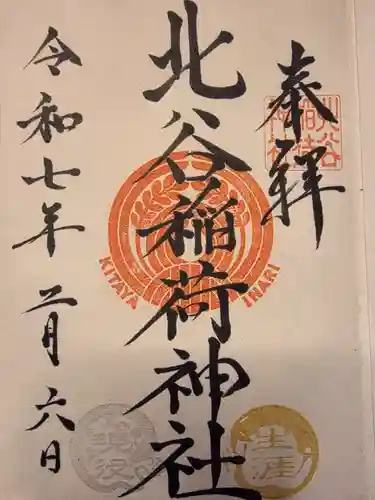 奉拝
北谷稲荷神社
令和七年二月六日
KITAYA
INARI
生涯